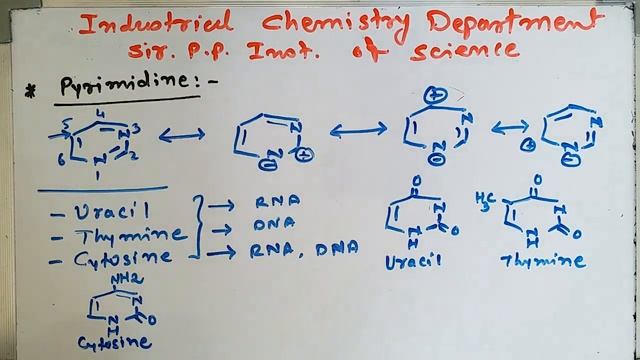 Industrial Chemistry Department
Sir. P.P. Inst. of Science
* Pyrimidine:-
4
5 N 3
6 N 2
1
N
N
⊖ ⊕
⊕
N
N
⊖
N
⊕ N
⊖
- Uracil → RNA
- Thymine → DNA
- Cytosine → RNA, DNA
O
N
N O
H
Uracil
O
H3C N
N O
H
Thymine
NH2
N
N O
H
Cytosine